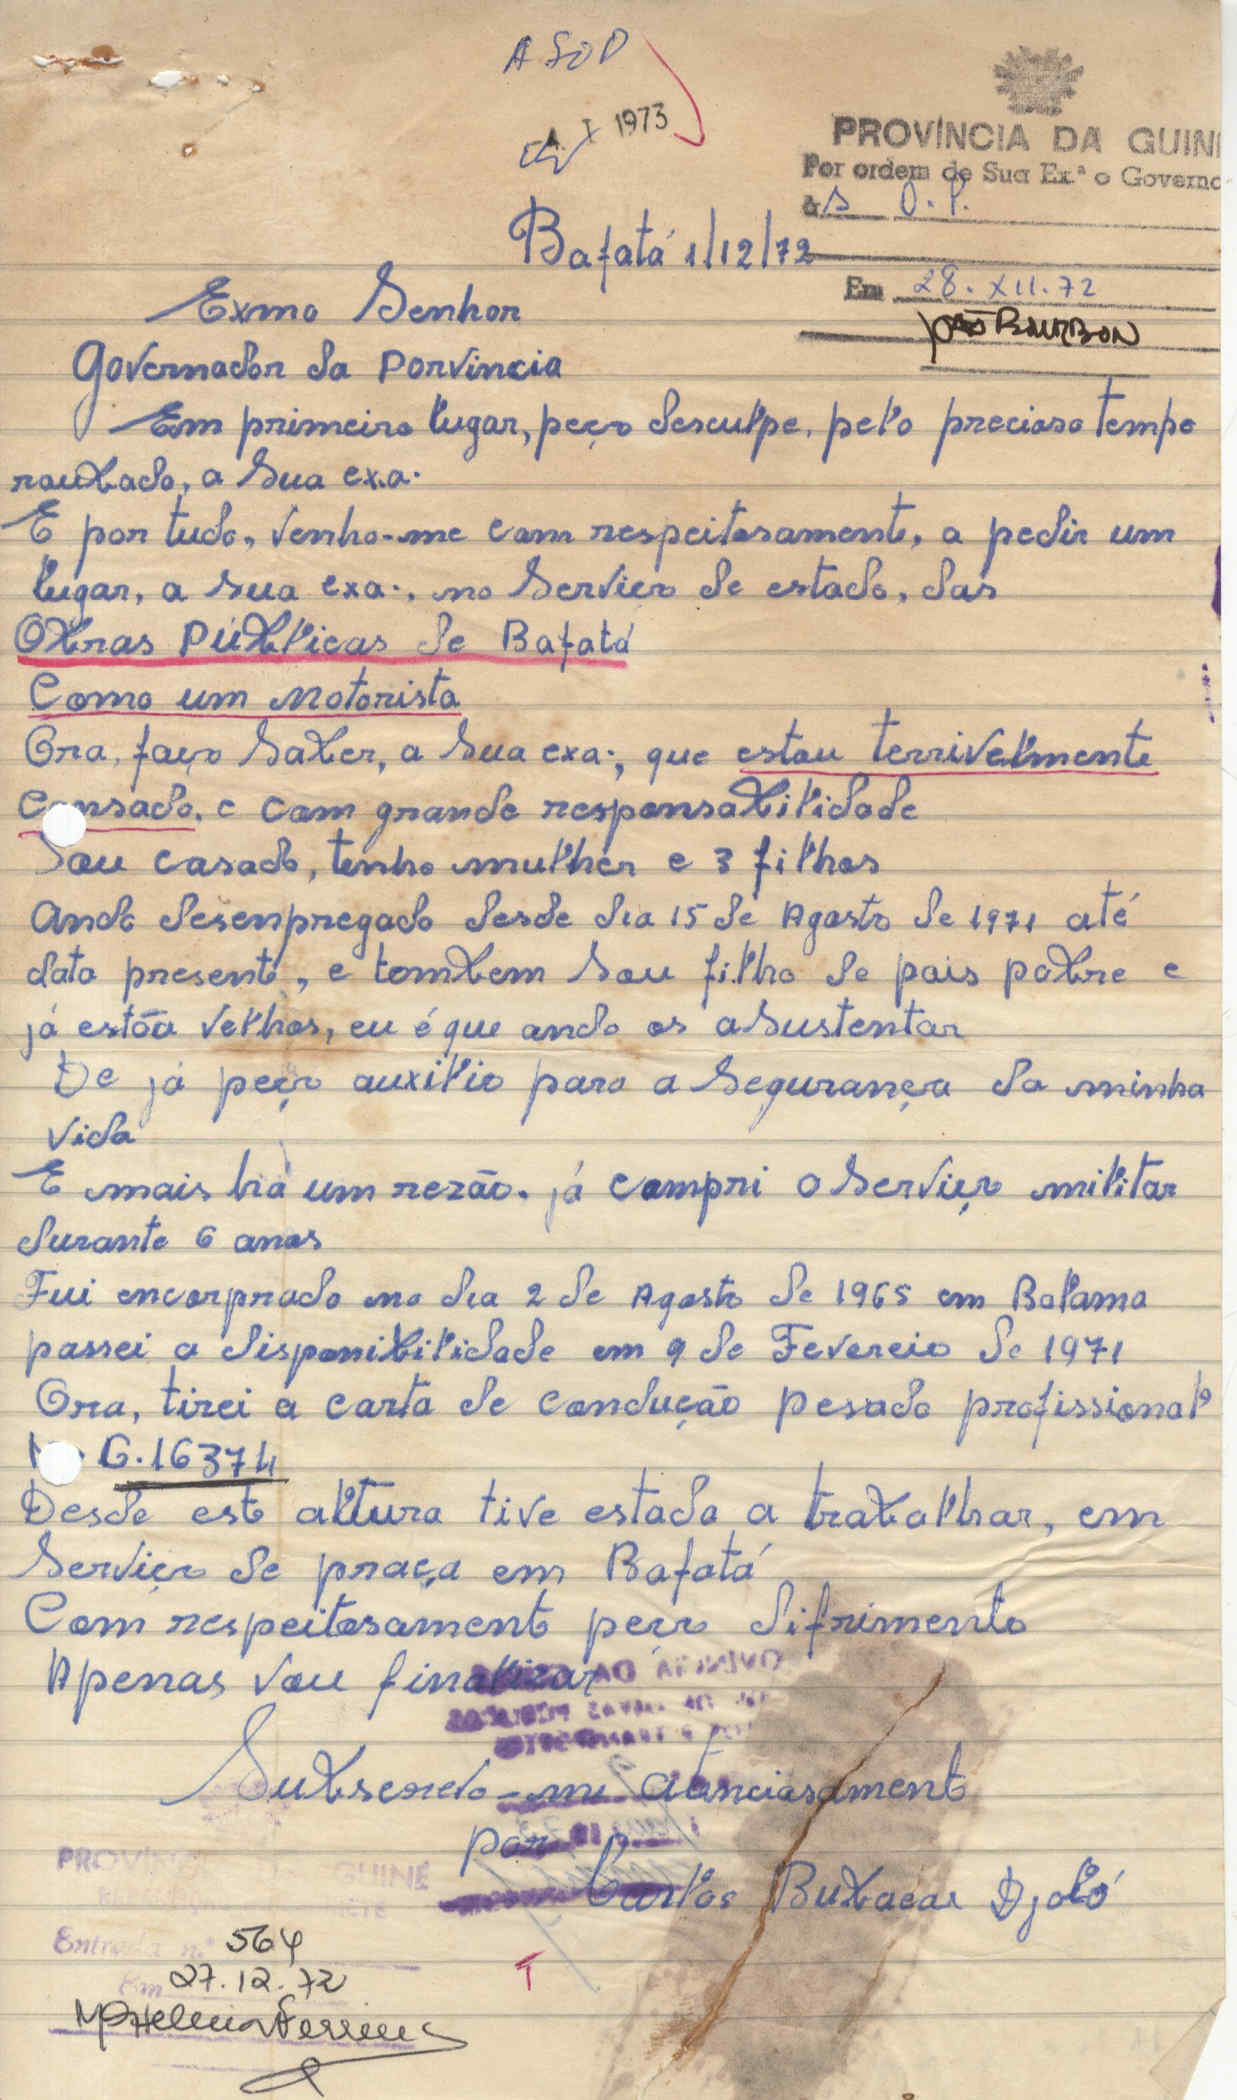 A SOP
1973
PROVÍNCIA DA GUINÉ
Por ordem de Sua Ex.ª o Governo
à S O.P.
Bafatá 1/12/72
Em 28.XII.72
João BOURBON
Exmo Senhor
Governador da Porvincia
Em primeiro lugar, peço desculpe, pelo precioso tempo
roubado, a Sua exa.
E por tudo, venho-me com respeitosamente, a pedir um
lugar, a Sua exa., no Serviço de estado, das
Obras Públicas de Bafatá
Como um Motorista
Ora, faço Saber, a Sua exa., que estou terrivelmente
Cansado, e com grande responsabilidade
Sou casado, tenho mulher e 3 filhos
Ando desenpregado desde dia 15 de Agosto de 1971 até
data presente, e tombem Sou filho de pais pobre e
já estõa velhos, eu é que ando os a Sustentar
De já peço auxilio para a Segurança da minha
vida
E mais há um rezão, já compri o Serviço militar
durante 6 anos
Fui encorprado no dia 2 de Agosto de 1965 em Bolama
passei a disponibilidade em 9 de Fevereio de 1971
Ora, tirei a carta de condução pesado profissional
G.16374
Desde este altura tive estado a trabalhar, em
Serviço de praça em Bafatá
Com respeitosamente peço difrimento
Apenas vou finalizar
Subscrevo-me atenciosamente
por
Carlos Bubacar Djaló
PROVÍNCIA DA GUINÉ
Entrada n.º 564
Em 27.12.72